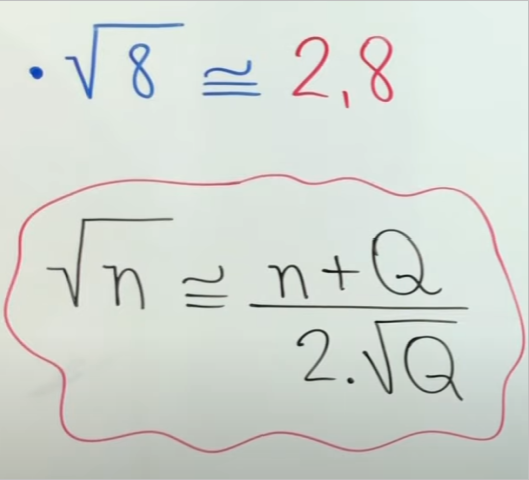 • √8 ≅ 2,8
√n ≅ (n + Q) / (2.√Q)